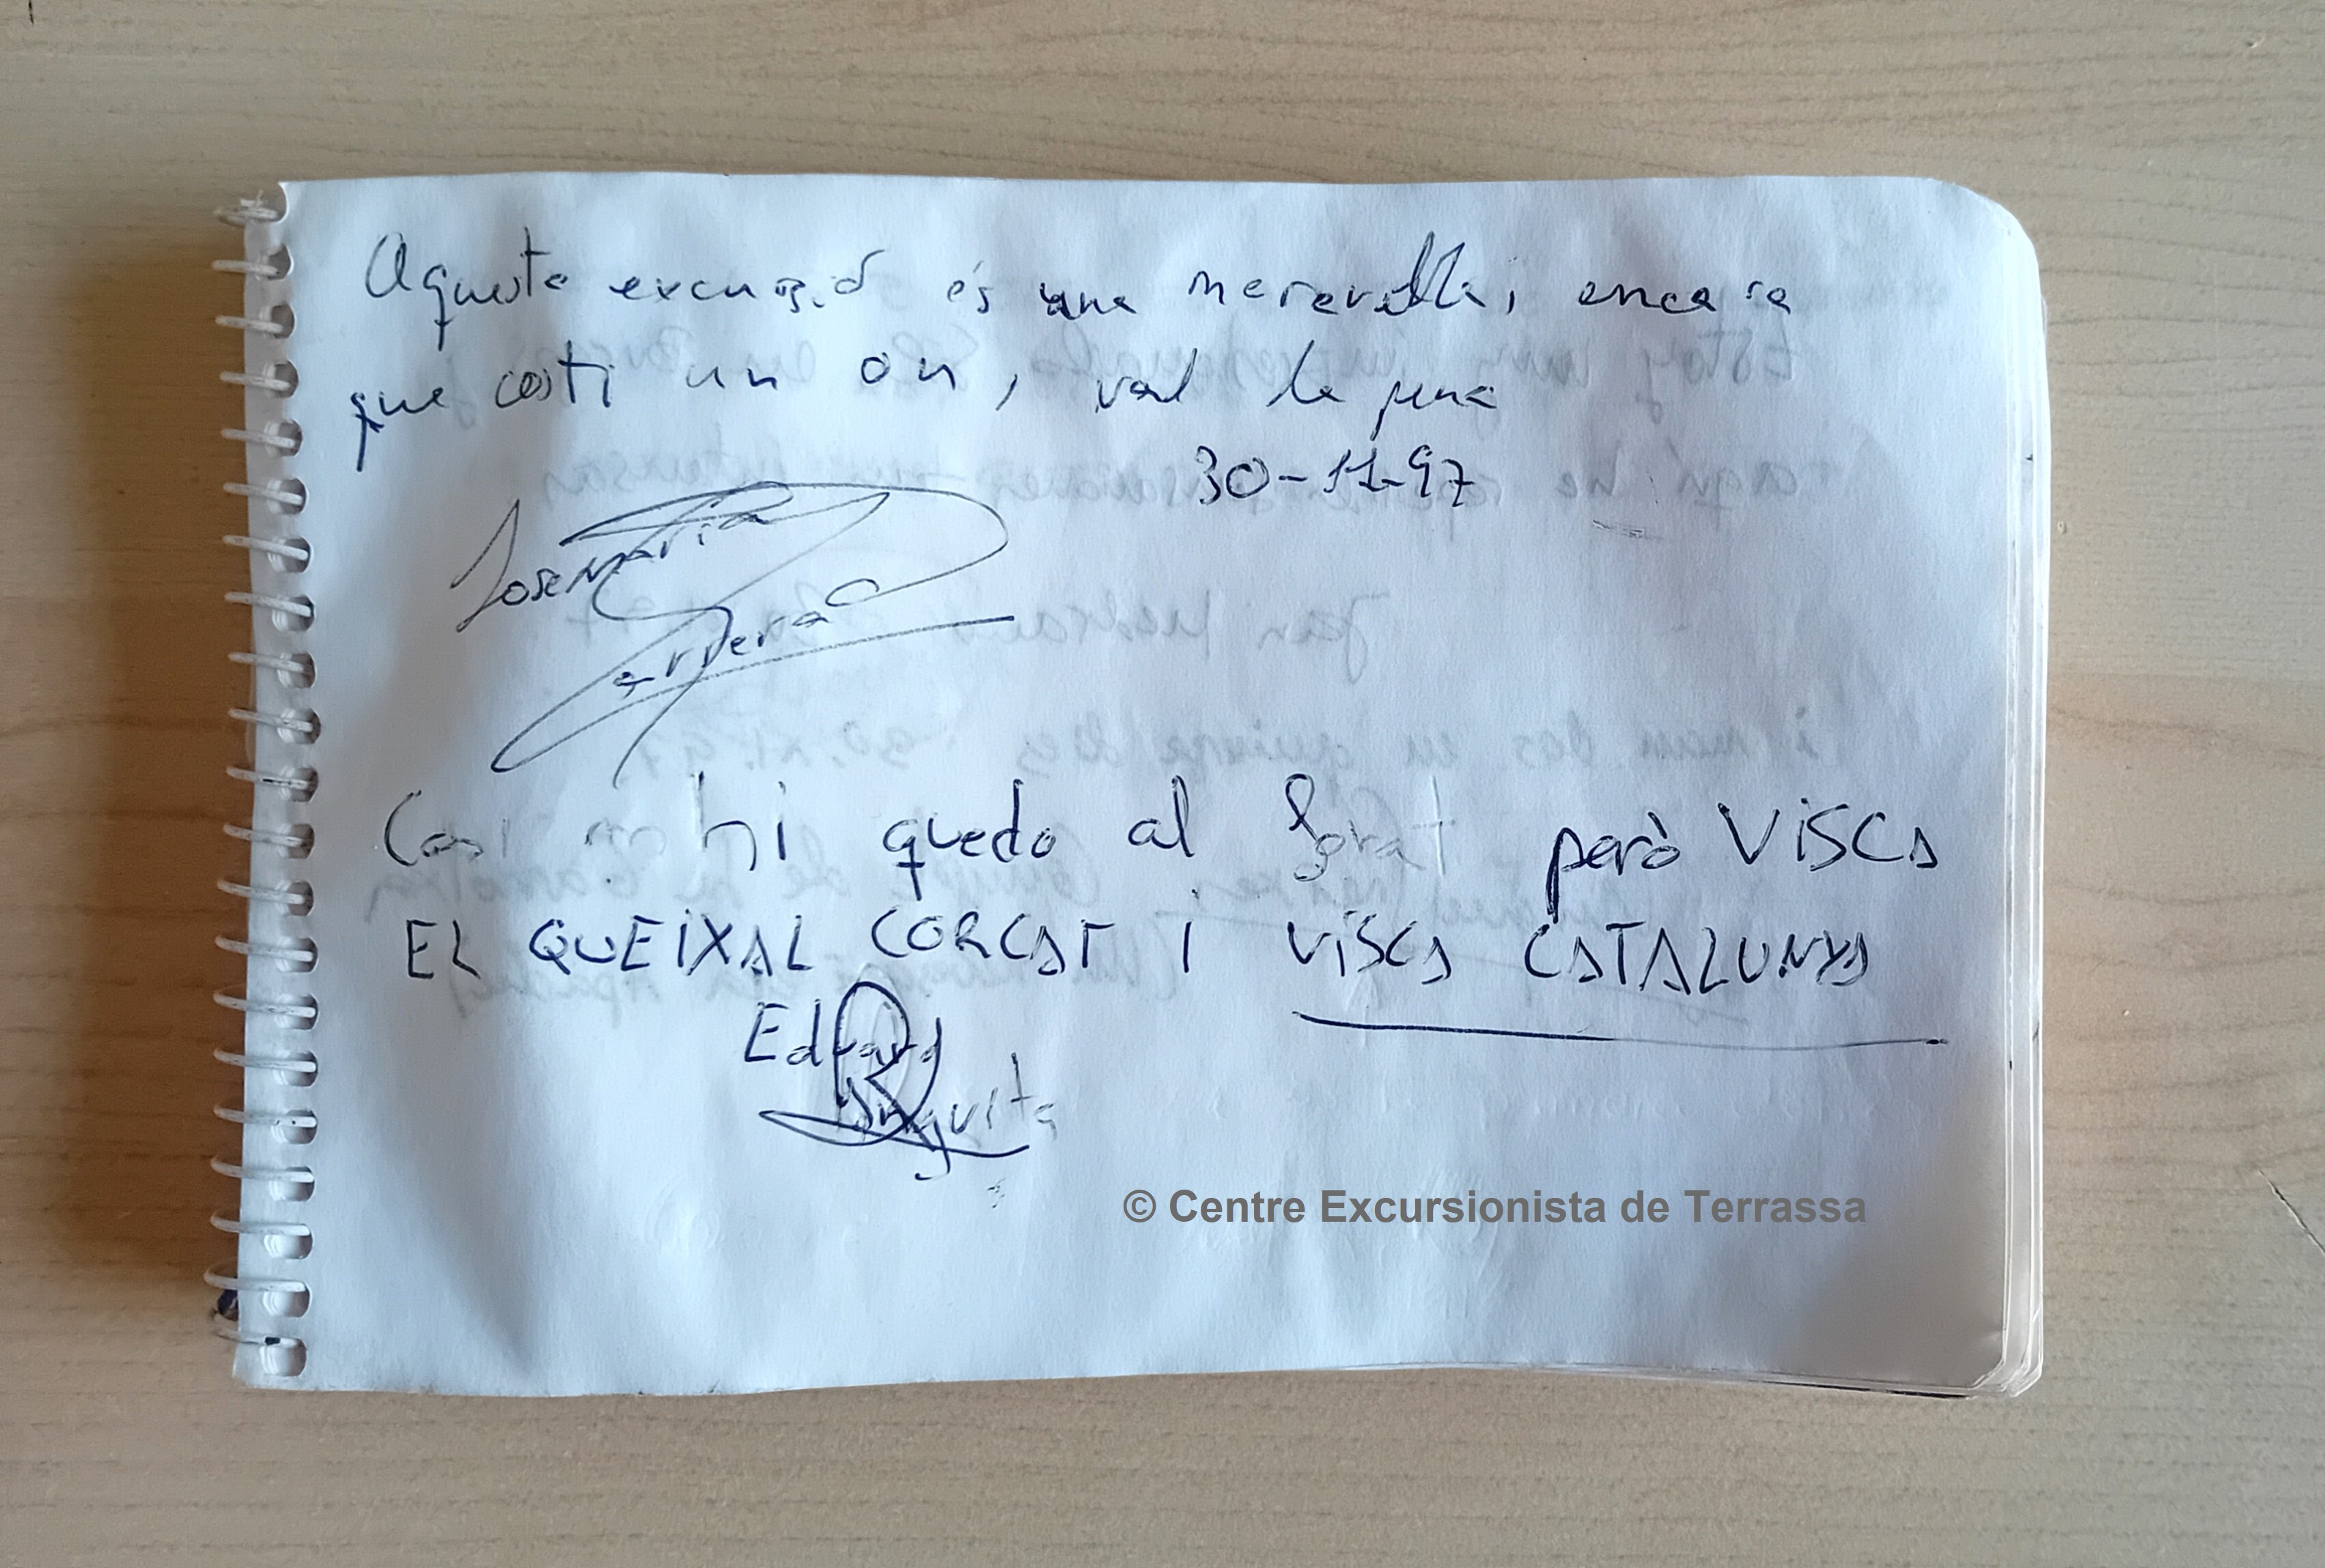 Aquesta excursió és una meravella, encara
que costi un on, val la pena
30-11-97
Josemaria
Cervera
Casi m hi quedo al forat però VISCA
EL QUEIXAL CORCAT I VISCA CATALUNYA
Eduard
© Centre Excursionista de Terrassa